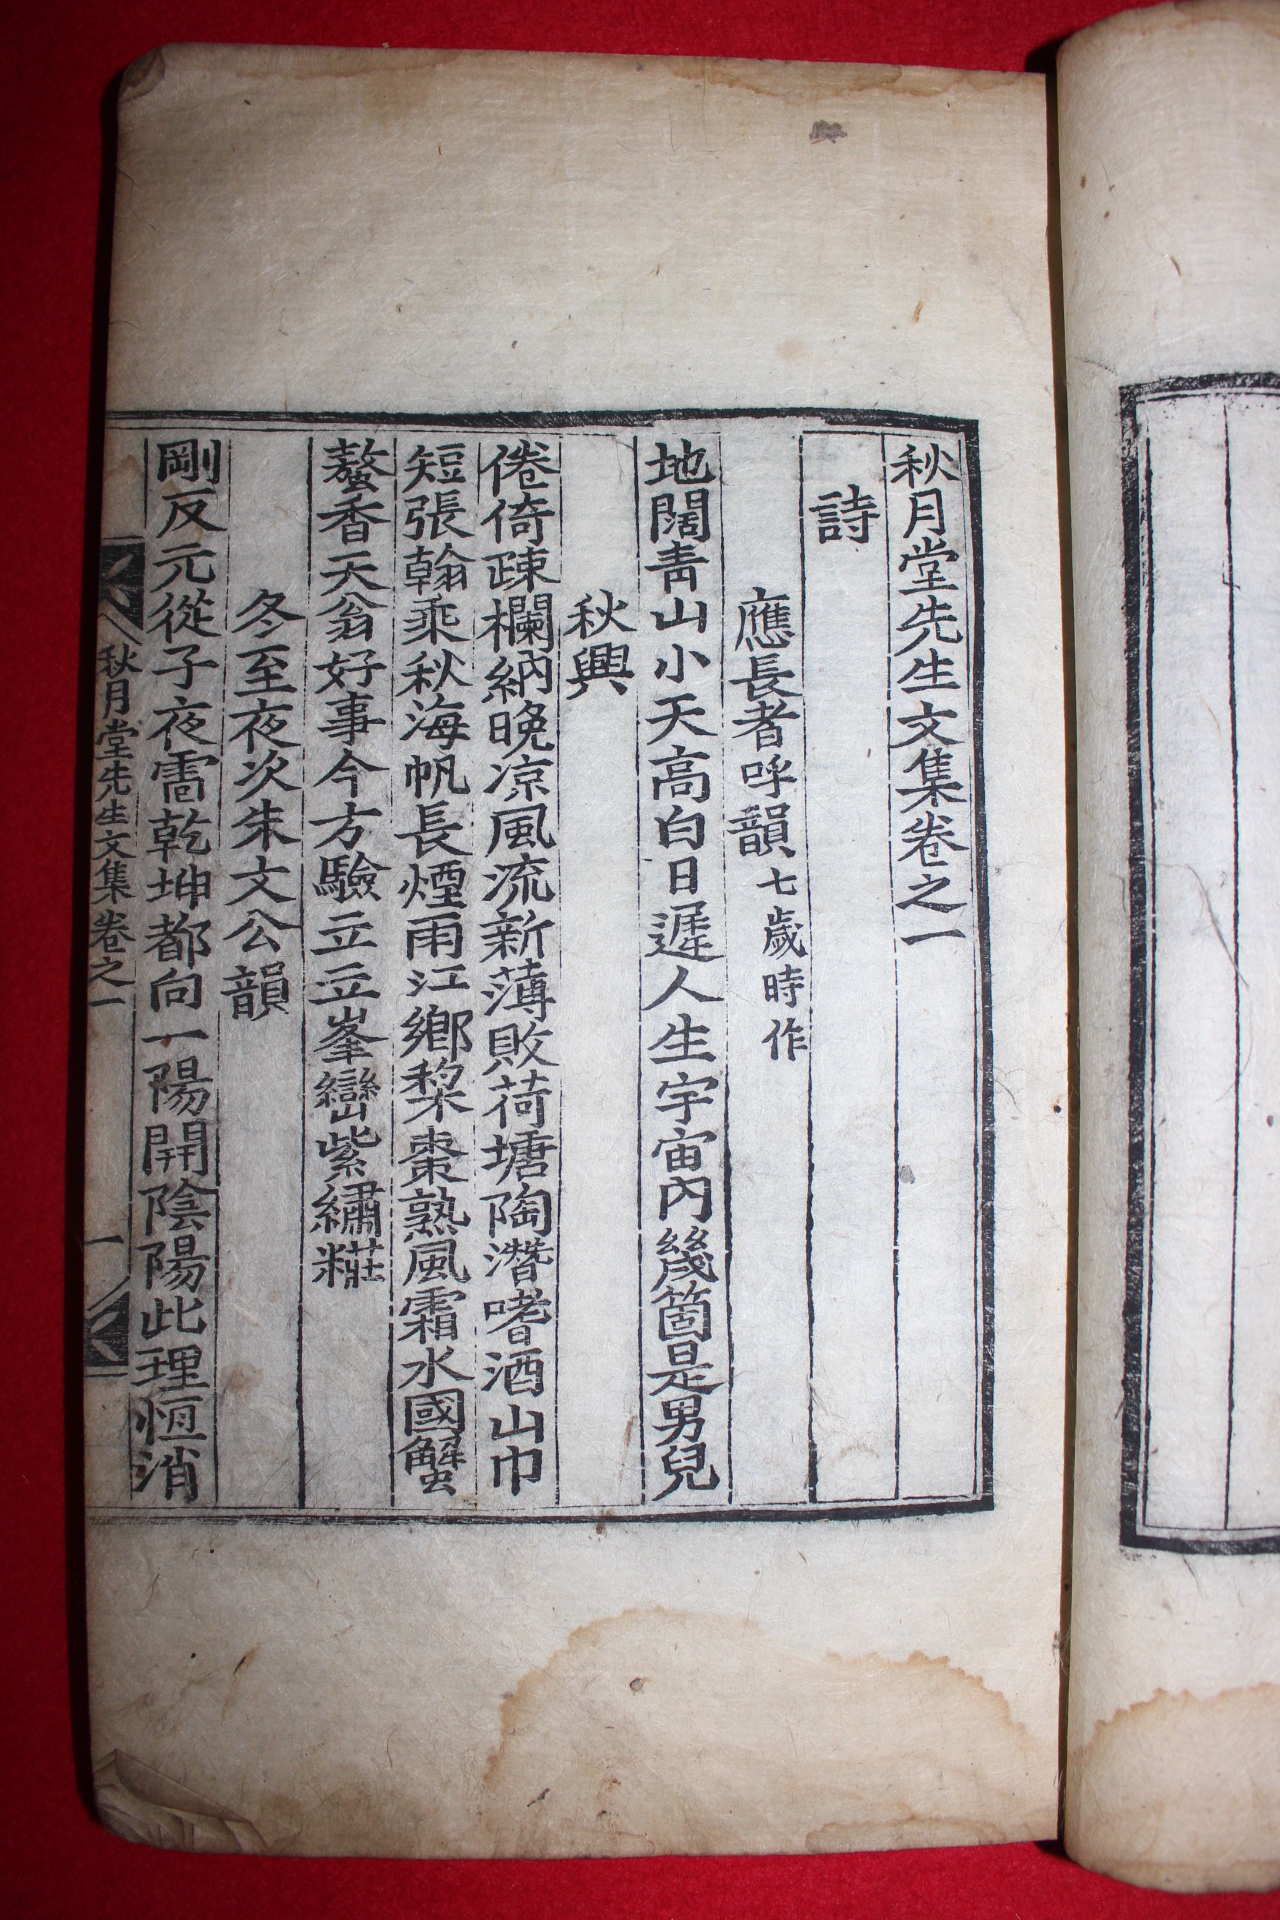 秋月堂先生文集卷之一
詩
應長者呼韻 七歲時作
地闊靑山小天高白日遲人生宇宙內幾箇是男兒
秋興
倦倚疎欄納晩凉風流新薄敗荷塘陶潛嗜酒山巾
短張翰乘秋海帆長煙雨江鄕梨棗熟風霜水國蟹
螯香天翁好事今方驗立立峯巒紫繡糚
冬至夜次朱文公韻
剛反元從子夜處乾坤都向一陽開陰陽此理恆消
秋月堂先生文集卷之一 一